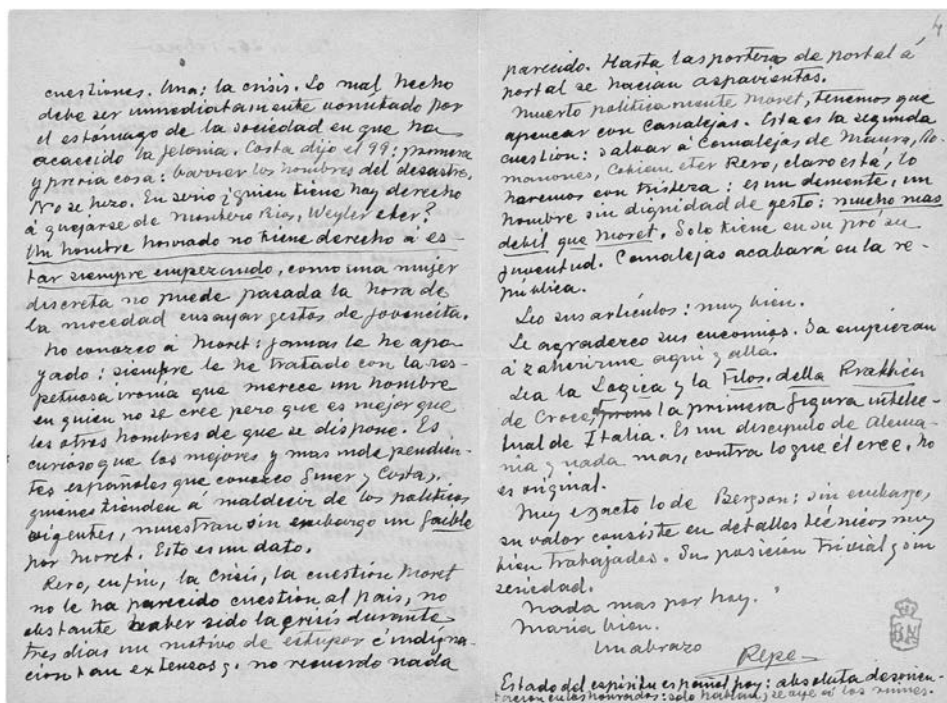 cuestiones. Una: la crisis. Lo mal hecho
debe ser inmediatamente vomitado por
el estómago de la sociedad en que ha
acaecido la felonia. Costa dijo el 99: primera
y previa cosa: barrer los hombres del desastre.
No se hizo. En serio ¿quien tiene hoy derecho
á quejarse de Montero Rios, Weyler etc?
Un hombre honrado no tiene derecho á es-
tar siempre empezando, como una mujer
discreta no puede pasada la hora de
la mocedad ensayar gestos de jovencita.
No conozco á Moret: jamas le he apo-
yado: siempre le he tratado con la res-
petuosa ironía que merece un hombre
en quien no se cree pero que es mejor que
los otros hombres de que se dispone. Es
curioso que los mejores y mas independien-
tes españoles que conozco Giner y Costa,
quienes tienden á maldecir de los politicos
vigentes, muestran sin embargo un faible
por Moret. Esto es un dato.
Pero, en fin, la crisis, la cuestion Moret
no le ha parecido cuestion al pais, no
obstante haber sido la crisis durante
tres dias un motivo de estupor é indigna-
cion tan extensos q. no recuerdo nada
4
parecido. Hasta las porteras de portal á
portal se hacian aspavientos.
Muerto politicamente Moret, tenemos que
apencar con Canalejas. Esta es la segunda
cuestion: salvar á Canalejas de Maura, Ro-
manones, Cobian etc Pero, claro está, lo
haremos con tristeza: es un demente, un
hombre sin dignidad de gesto: mucho mas
debil que Moret. Solo tiene en su pró su
juventud. Canalejas acabará en la re-
pública.
Leo sus articulos: muy bien.
Le agradezco sus encomios. Ya empiezan
á zaherirme aqui y allá.
Lea la Logica y la Filos. della Prattica
de Croce, la primera figura intelec-
tual de Italia. Es un discipulo de Alema-
nia y nada mas, contra lo que él cree. No
es original.
Muy exacto lo de Bergson: sin embargo,
su valor consiste en detalles técnicos muy
bien trabajados. Su posicion trivial y sin
seriedad.
Nada mas por hoy.
Maria bien.
Un abrazo
Pepe
Estado del espiritu español hoy: absoluta desorien-
tacion en los honrados: solo hablan, se oye á los ruines.